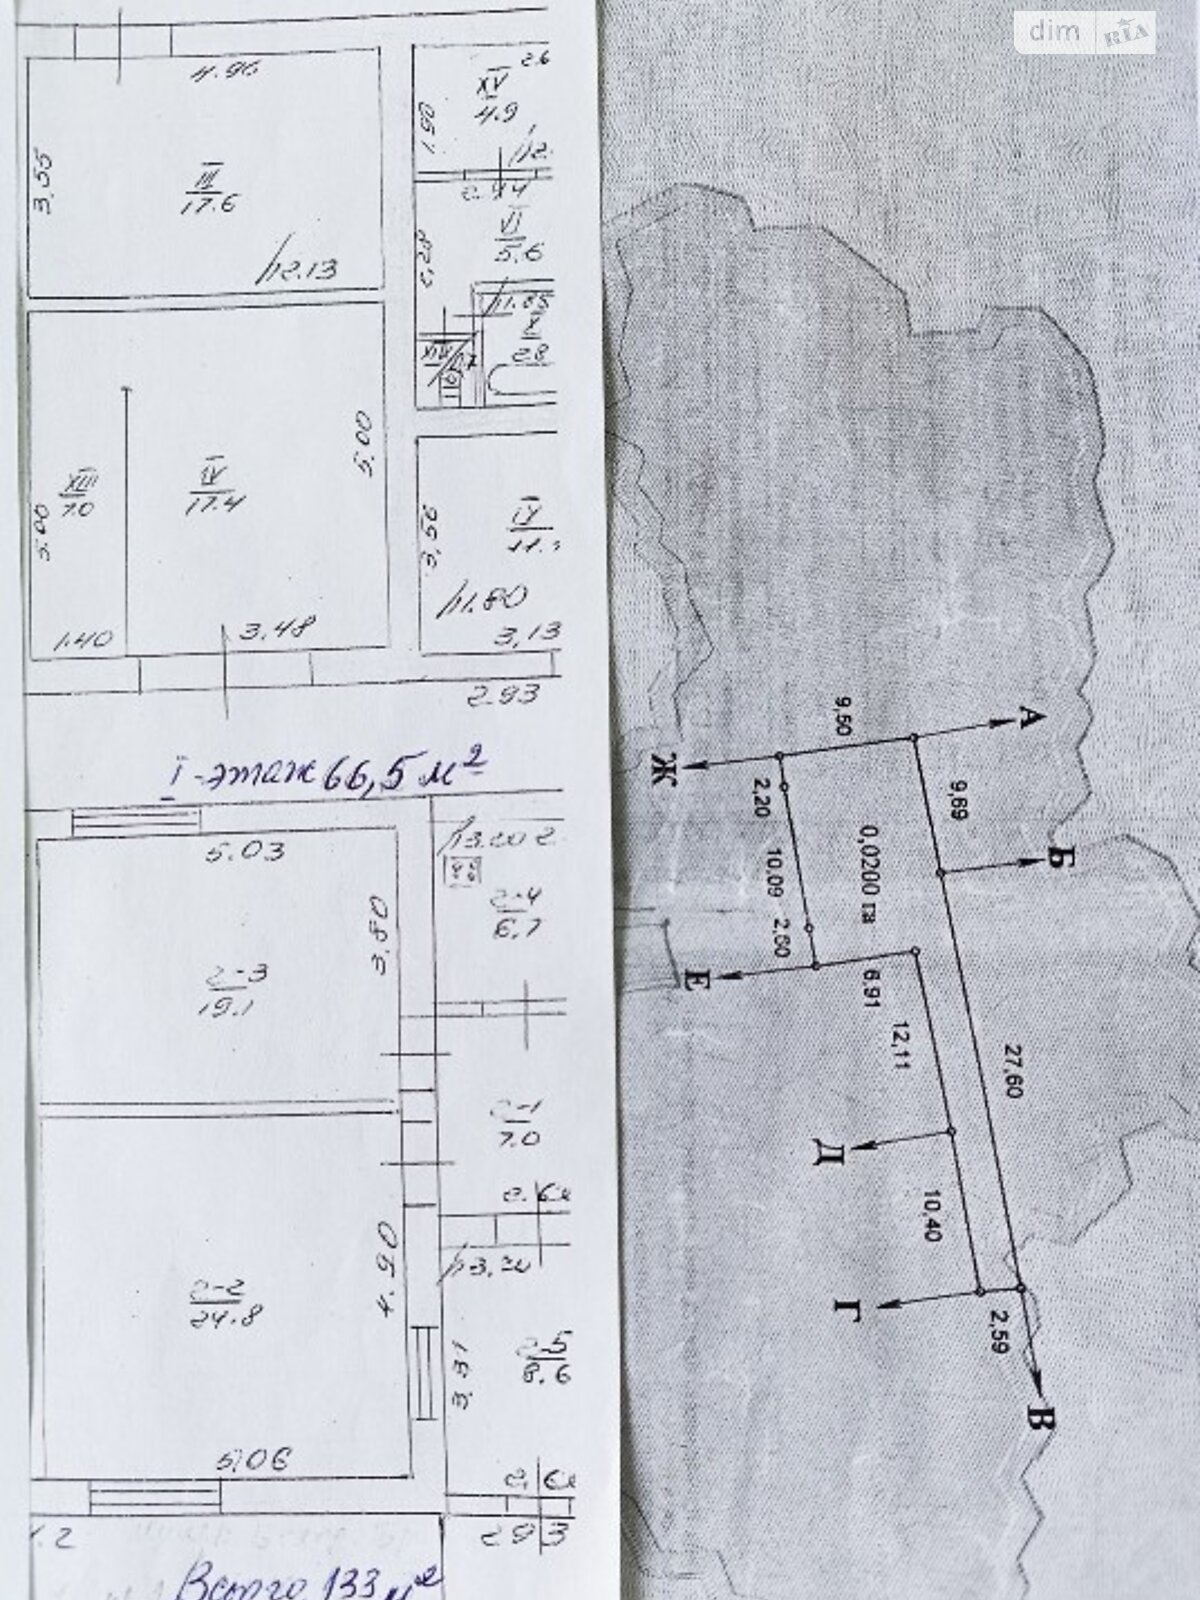 dim RIA
4.96
3.55
III
17.6
12.13
2.6
XV
4.9
1.50
2.44
VI
5.6
11.85
X
2.8
5.00
XIII
7.0
IV
17.4
5.00
1.40
3.48
3.56
IV
11.80
3,13
2.93
I-этаж 66,5 м²
5.03
3.80
2-3
19.1
2-4
6.7
2-1
7.0
2-2
24.8
4.90
5.06
3.51
2 5
8.6
2.93
Всего 133 м²
А
Б
В
Г
Д
Е
Ж
9,50
9,69
27,60
2,59
10,40
12,11
6.91
2,60
10,09
2,20
0,0200 га